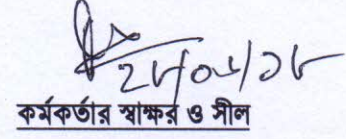 ২৮/০৬/১৮
কর্মকর্তার স্বাক্ষর ও সীল